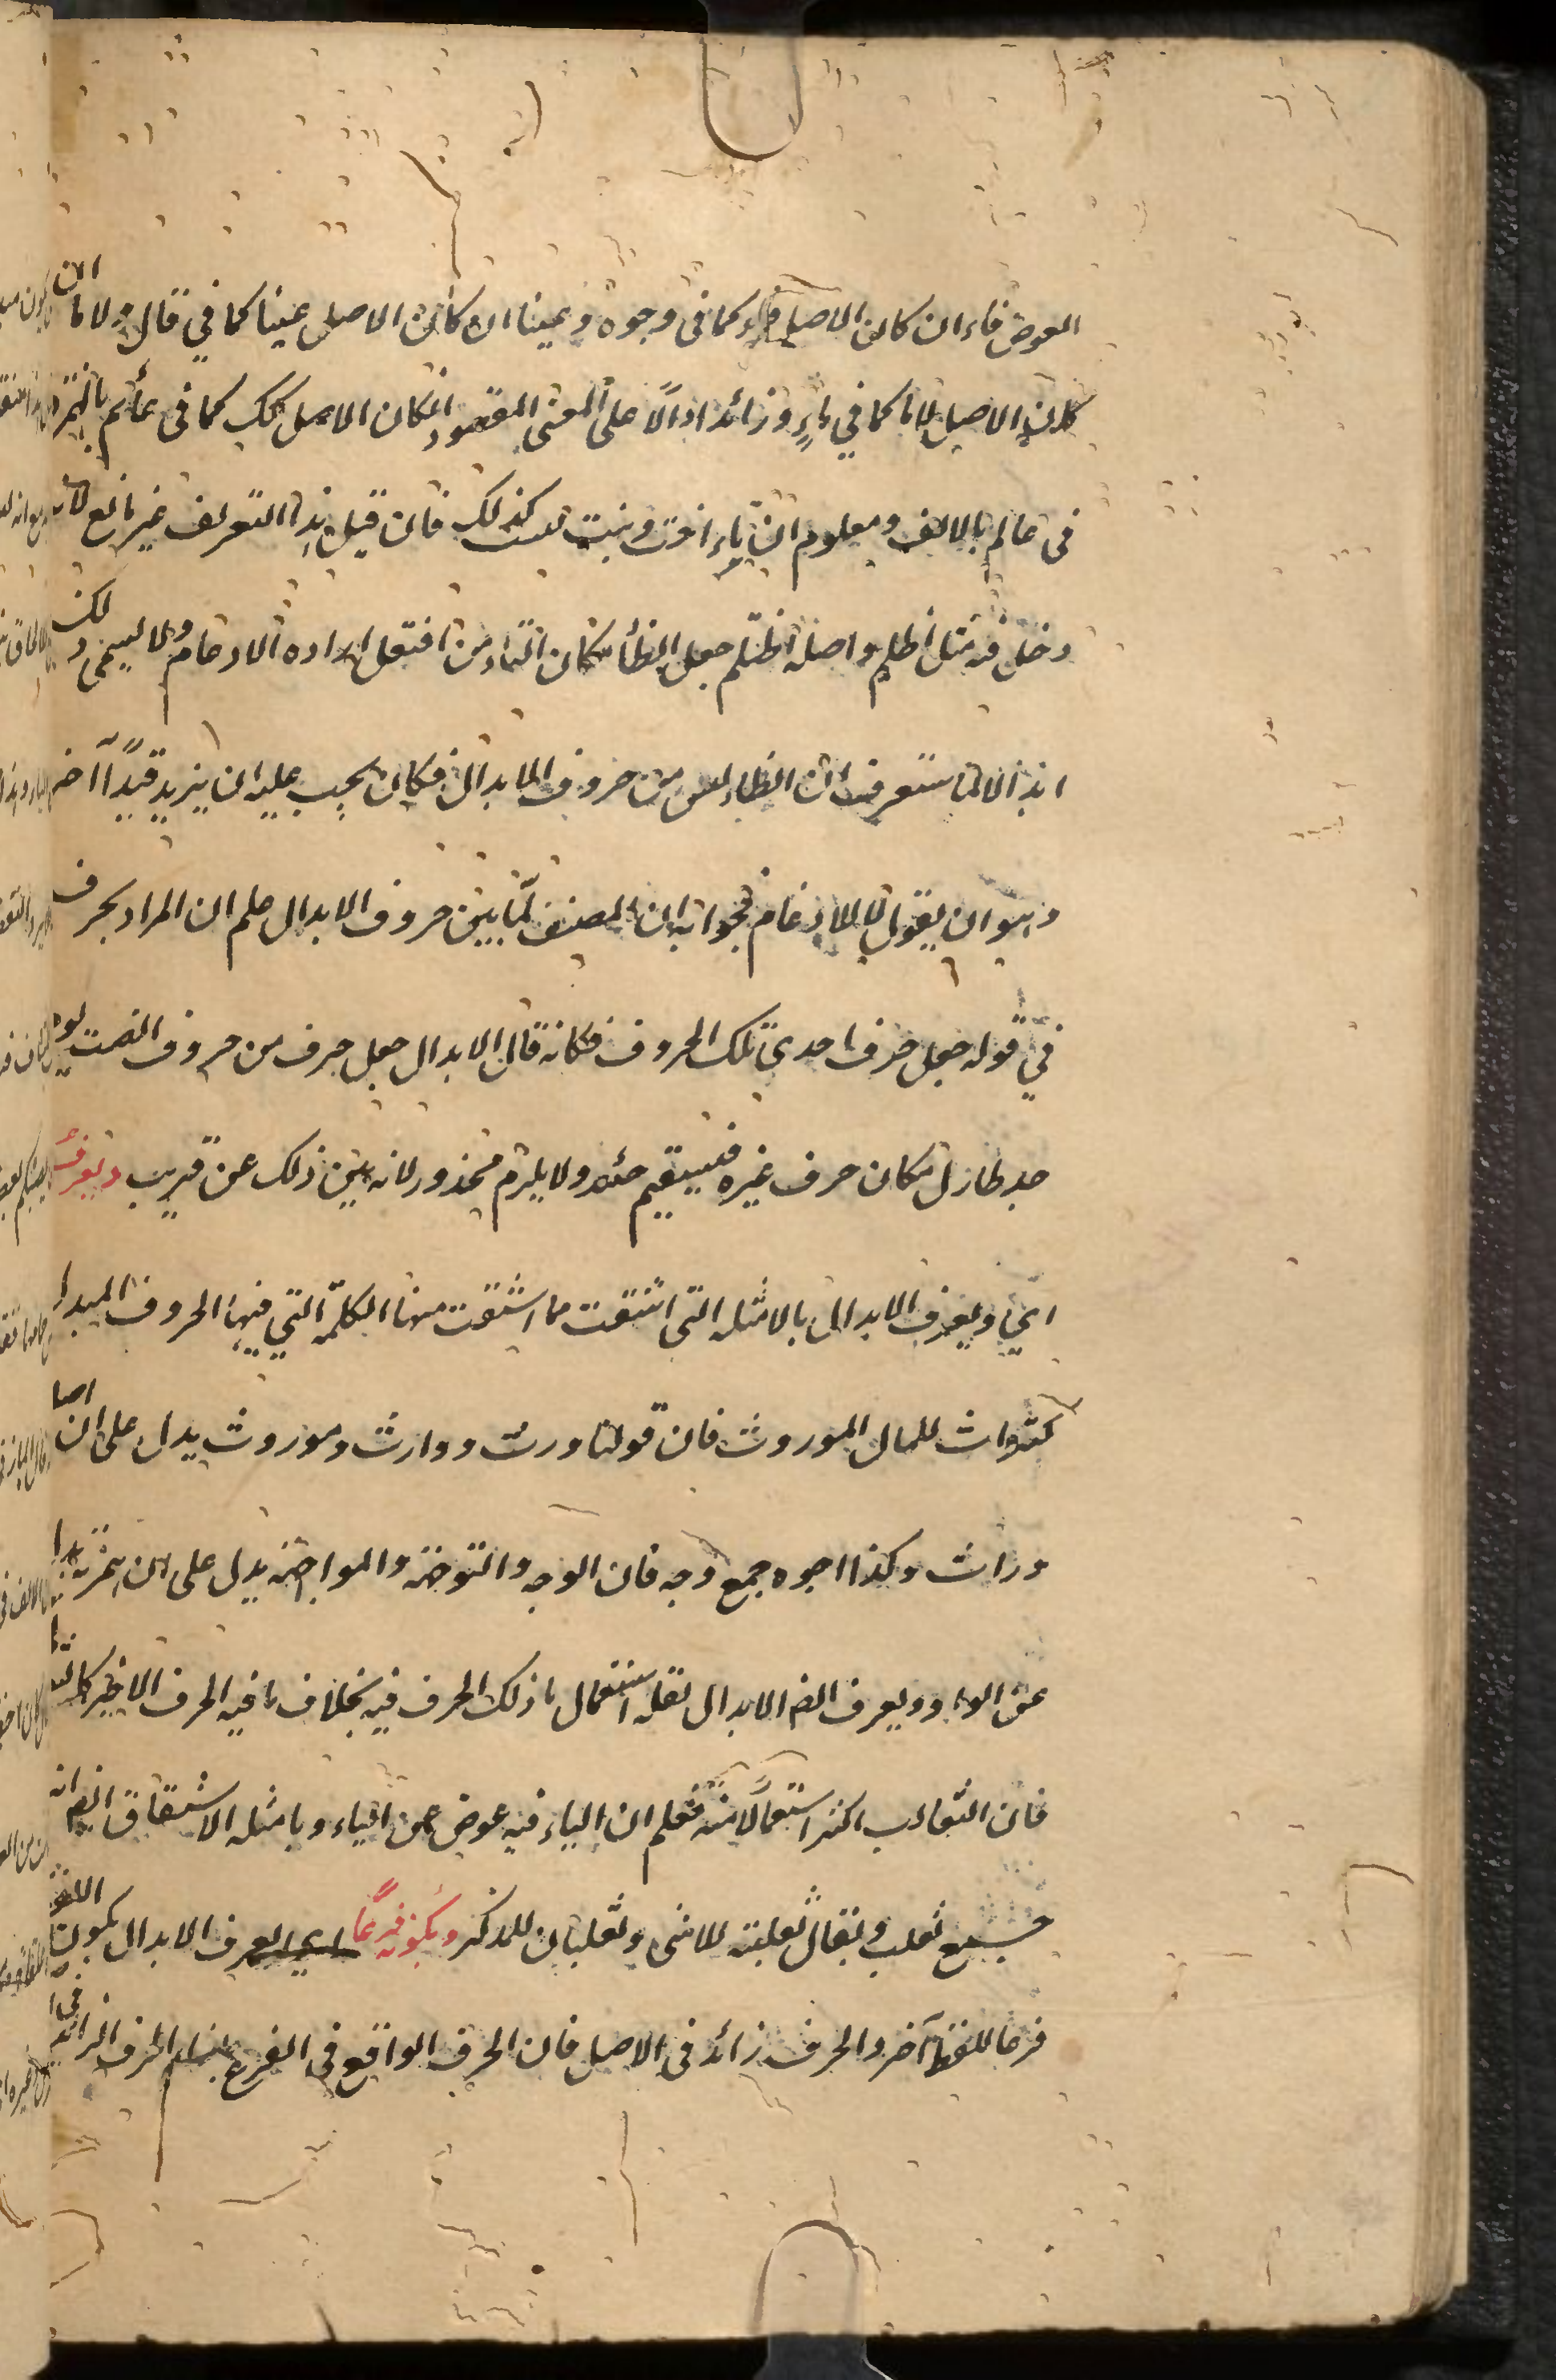 العوض فاء ان كان الاصل فاء كما في وجوه وعينا ان كان الاصل عينا كما في قال ولاما ان
كان الاصل لاما كما في ماء وزائدا دالا على المعنى المقصود ان كان الاصل كك كما في عألم بالهمزة
في عالم بالالف ومعلوم ان تاء اخت وبنت ليست كذلك فان قيل هذا التعريف غير مانع لانه
دخل فيه مثل اظلم واصله اظتلم جعل الظاء مكان التاء من افتعل لارادة الادغام ولا يسمى ذلك
ابدالا لما ستعرف ان الظاء ليس من حروف الابدال فكان يجب عليه ان يزيد قيدا آخر
وهو ان يقول لا للادغام فجوابه ان المصنف لما بين حروف الابدال علم ان المراد بحرف
في قوله جعل حرف احدى تلك الحروف فكانه قال الابدال جعل حرف من حروف انصت يوم
جد طاه زل مكان حرف غيره فيستقيم حده ولا يلزم محذور لانه بين ذلك عن قريب ويعرف
اي ويعرف الابدال بالامثلة التي اشتقت مما اشتقت منها الكلمة التي فيها الحروف المبدل
كتراث للمال الموروث فان قولنا ورث ووارث وموروث يدل على ان اصله
وراث وكذا اجوه جمع وجه فان الوجه والتوجه والمواجهة يدل على ان همزته بدل
عن الواو ويعرف ايضا الابدال بقلة استعمال ما ذلك الحرف فيه بخلاف ما فيه الحرف الاخير كالثعالي
فان الثعالب اكثر استعمالا منه فعلم ان الياء فيه عوض عن الباء وبامثلة الاشتقاق ايضا انه
جمع ثعلب ويقال ثعلبة للانثى وثعلبان للذكر وبكونه فرعا اي يعرف الابدال بكون اللفظ
فرعا للفظ آخر والحرف زائد في الاصل فان الحرف الواقع في الفرع الحرف الزائد في